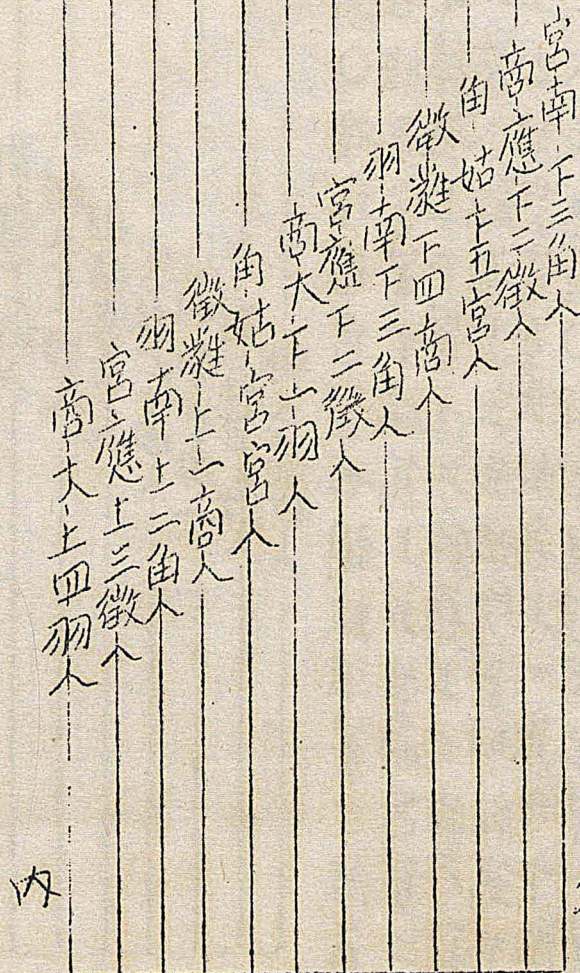 宮南下三角人
商應下二徵人
角姑上五宮人
徵蕤下四商人
羽南下三角人
宮應下二徵人
商大下一羽人
角姑宮宮人
徵蕤上一商人
羽南上二角人
宮應上三徵人
商大上四羽人
内